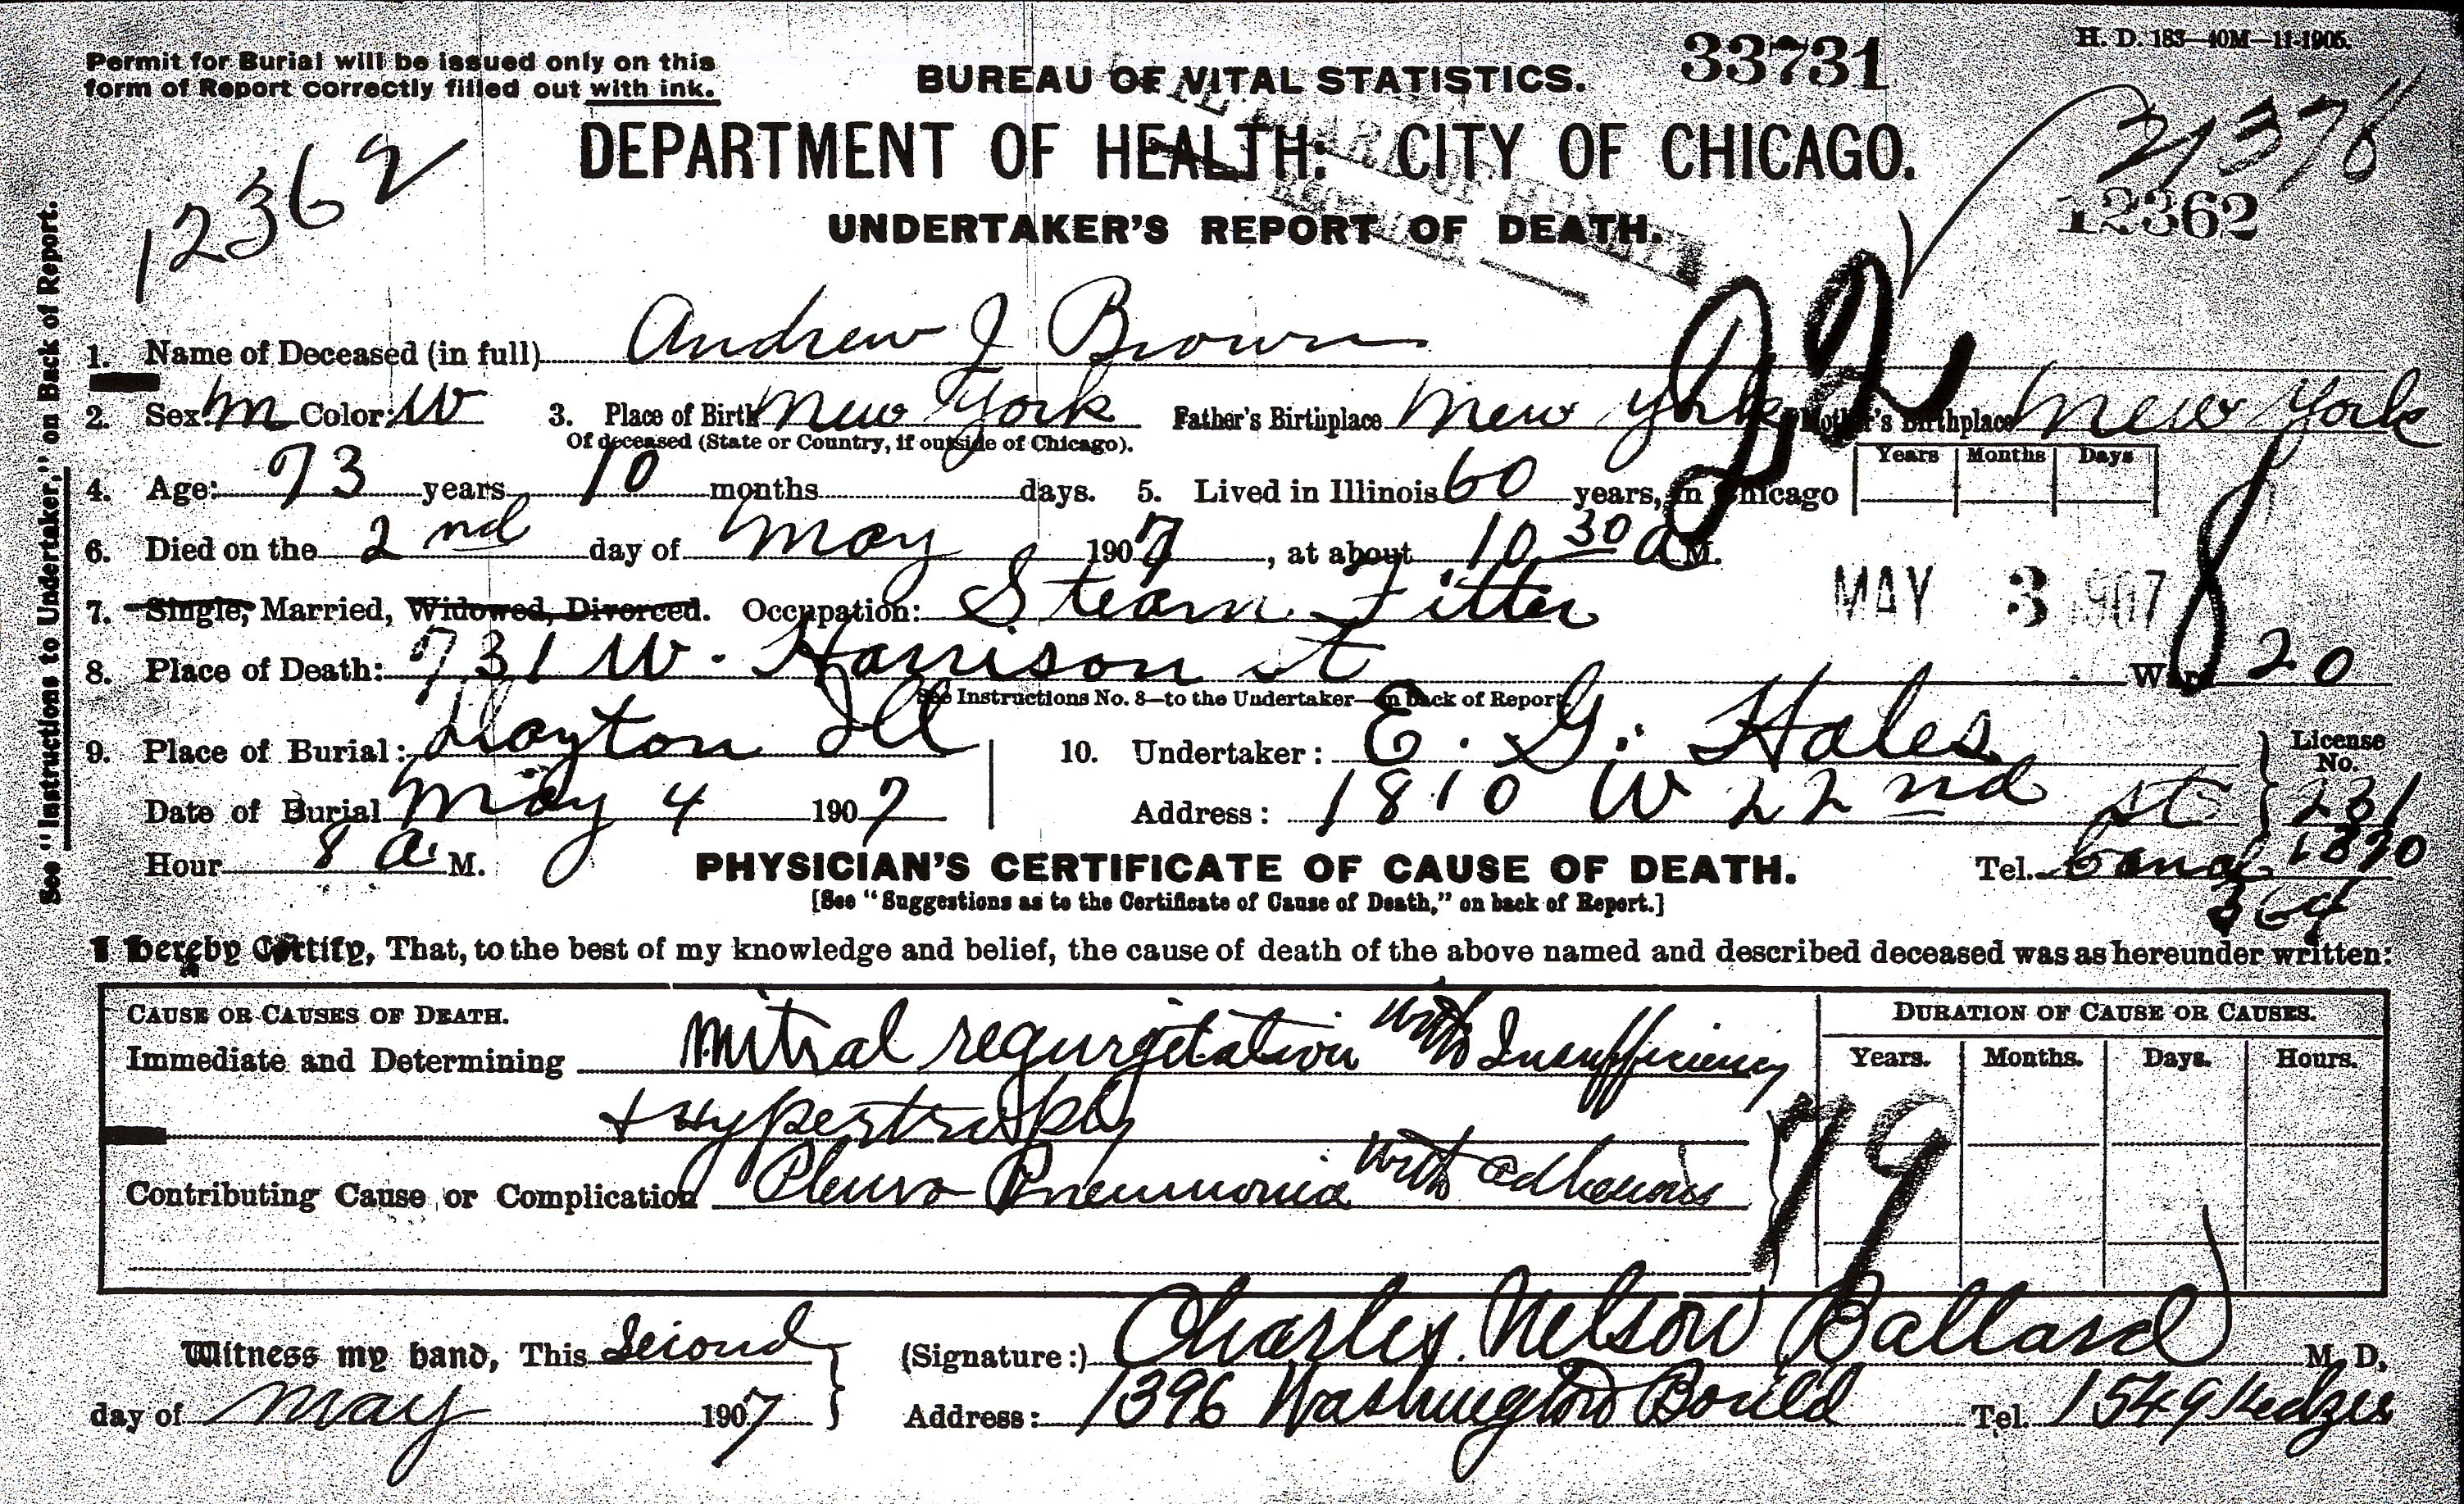 H. D. 183—40M—11-1905.
Permit for Burial will be issued only on this
form of Report correctly filled out with ink.
BUREAU OF VITAL STATISTICS.
33731
DEPARTMENT OF HEALTH: CITY OF CHICAGO.
12362
21376
12362
UNDERTAKER'S REPORT OF DEATH.
See "Instructions to Undertaker," on Back of Report.
1. Name of Deceased (in full) Andrew J Brown
2. Sex: M Color: W 3. Place of Birth New York Father's Birthplace New York Mother's Birthplace New York
Of deceased (State or Country, if outside of Chicago).
4. Age: 73 years 10 months days. 5. Lived in Illinois 60 years, in Chicago Years Months Days
6. Died on the 2nd day of May 1907, at about 10 30 a M.
7. Single, Married, Widowed, Divorced. Occupation: Steam Fitter
MAY 3 1907
8. Place of Death: 731 W. Harrison St Ward 20
See Instructions No. 8—to the Undertaker—on back of Report
9. Place of Burial: Dayton Ill
10. Undertaker: E. G. Hales
License No. 231
Date of Burial May 4 1907
Address: 1810 W 22nd St
Hour 8 a. M.
Tel. Canal 1890
364
PHYSICIAN'S CERTIFICATE OF CAUSE OF DEATH.
[See "Suggestions as to the Certificate of Cause of Death," on back of Report.]
I hereby Certify, That, to the best of my knowledge and belief, the cause of death of the above named and described deceased was as hereunder written:
CAUSE OR CAUSES OF DEATH.
DURATION OF CAUSE OR CAUSES.
Years. Months. Days. Hours.
Immediate and Determining Mitral regurgitation with Insufficiency
+ Hypertrophy
79
Contributing Cause or Complication Pleuro Pneumonia with adhesions
Witness my hand, This Second
day of May 1907
(Signature:) Charles Nelson Ballard M. D.
Address: 1396 Washington Bould Tel. 1549 Kedzie